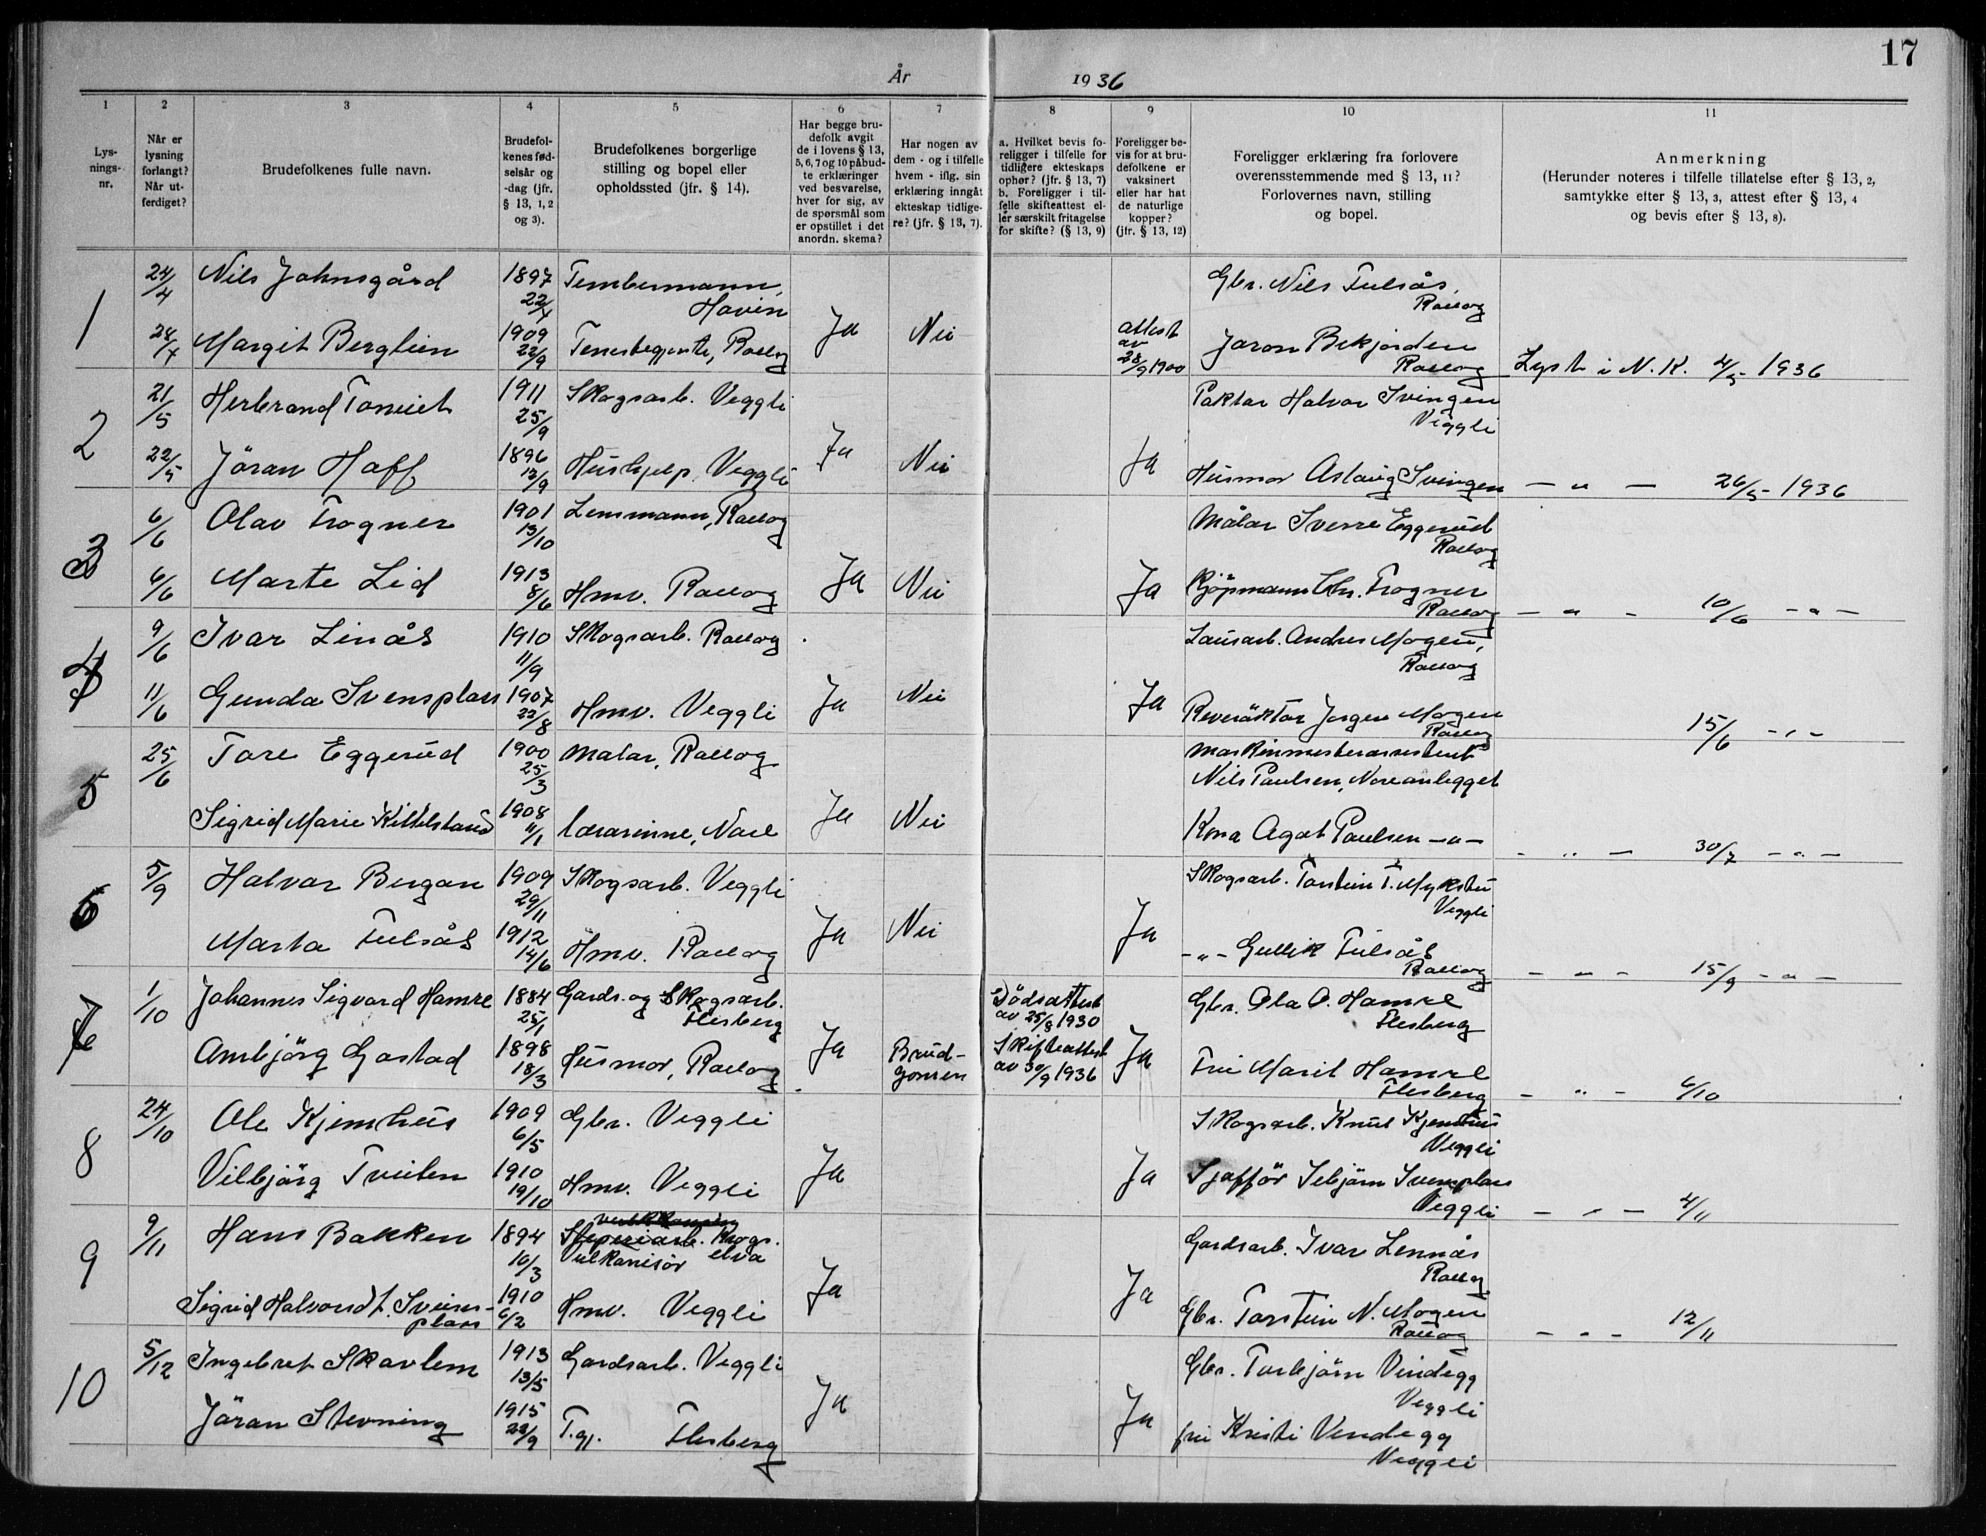 17
År 1936
1
2
3
4
5
6
7
8
9
10
11
Lys-
nings-
nr.
Når er
lysning
forlangt?
Når ut-
ferdiget?
Brudefolkenes fulle navn.
Brudefol-
kenes fød-
selsår og
-dag (jfr.
§ 13, 1, 2
og 3).
Brudefolkenes borgerlige
stilling og bopel eller
opholdssted (jfr. § 14).
Har begge bru-
defolk avgit
de i lovens § 13,
5, 6, 7 og 10 påbud-
te erklæringer
ved besvarelse,
hver for sig, av
de spørsmål som
er opstillet i det
anordn. skema?
Har nogen av
dem - og i tilfelle
hvem - iflg. sin
erklæring inngåt
ekteskap tidlige-
re? (jfr. § 13, 7).
a. Hvilket bevis fo-
religger i tilfelle for
tidligere ekteskaps
ophør? (jfr. § 13, 7)
b. Foreligger i til-
felle skifteattest el-
ler særskilt fritagelse
for skifte? (§ 13, 9)
Foreligger be-
vis for at bru-
defolkene er
vaksinert
eller har hat
de naturlige
kopper?
(jfr. § 13, 12)
Foreligger erklæring fra forlovere
overensstemmende med § 13, 11?
Forlovernes navn, stilling
og bopel.
Anmerkning
(Herunder noteres i tilfelle tillatelse efter § 13, 2,
samtykke efter § 13, 3, attest efter § 13, 4
og bevis efter § 13, 8).
1
24/4 Nils Johnsgård 1897 Tømbermann, Gbr. Nils Tulsås,
22/4 Hovin Rollog
24/4 Margit Berglien 1909 22/9 Tenestegjente, Rollog Ja Nei attest av 28/9 1900 Jøron Bekjorden
Rollog Lyst i N. K. 4/5 - 1936
2
21/5 Herbrand Toneiet 1911 25/9 Skogsarb. Veggli Paktar Halvor Svingen
Veggli
22/5 Jöran Hoff 1896 13/9 Hushjelp, Veggli Ja Nei Ja Husmor Aslaug Svingen — " — 26/5 - 1936
3
6/6 Olav Frogner 1901 13/10 Lensmann, Rollog Målar Sverre Eggerud
Rollog
6/6 Marte Lid 1913 8/6 Hmv. Rollog Ja Nei Ja Kjöpmann Chr. Frogner
Rollog — " - 10/6 — " —
4
9/6 Ivar Linås 1910 11/9 Skogsarb. Rollog Lausarb. Andres Mogen,
Rollog
11/6 Gunda Svensplass 1907 22/8 Hmv. Veggli Ja Nei Ja Reveröktar Jørgen Mogen
Rollog 15/6 - " -
5
25/6 Tore Eggerud 1900 25/3 Målar, Rollog Maskinmesterassistent
Nils Paulsen, Noreanlegget
Sigrid Marie Kittelsland 1908 11/1 lærarinne, Nore Ja Nei Kona Agot Paulsen - " -
- " — 30/7 — " —
6
5/9 Halvor Bergan 1909 29/11 Skogsarb. Veggli Skogsarb. Torstein T. Mykstu
Veggli
Marta Tulsås 1912 14/6 Hmv. Rollog Ja Nei Ja - " - Gullik Tulsås
Rollog — " - 15/9 - " -
7
1/10 Johannes Sigvard Hamre 1884 25/1 Gards. og Skogsarb. Dödsattest Gbr. Ola O. Hamre
Flesberg av 25/8 1930 Flesberg
Ambjörg Gostad 1898 18/3 Husmor, Rollog Ja Brud- Skifteattest Ja Fru Marit Hamre
gomen av 30/9 1936 Flesberg - " - 6/10
8
24/10 Ole Kjemhus 1909 6/5 Gbr. Veggli Skogsarb. Knut Kjemhus
Veggli
Vilbjörg Tveiten 1910 19/10 Hmv. Veggli Ja Ja Sjafför Sebjörn Svensplass
Veggli — " — 4/11
9
9/11 Hans Bakken 1894 10/3 Kogs. Gardsarb. Ivar Lennås
Vulkanisör elva Rollog
Sigrid Halvorsdt. Sveins- 1910 6/2 Hmv. Veggli Ja Ja Gbr. Torstein N. Mogen
plass Rollog — " - 12/11
10
5/12 Ingebret Skavlem 1913 13/5 Gardsarb. Veggli Gbr. Torbjörn Vindegg
Veggli
Jöran Stevning 1915 22/9 T.gj. Flesberg Ja Ja fru Kristi Vindegg
Veggli